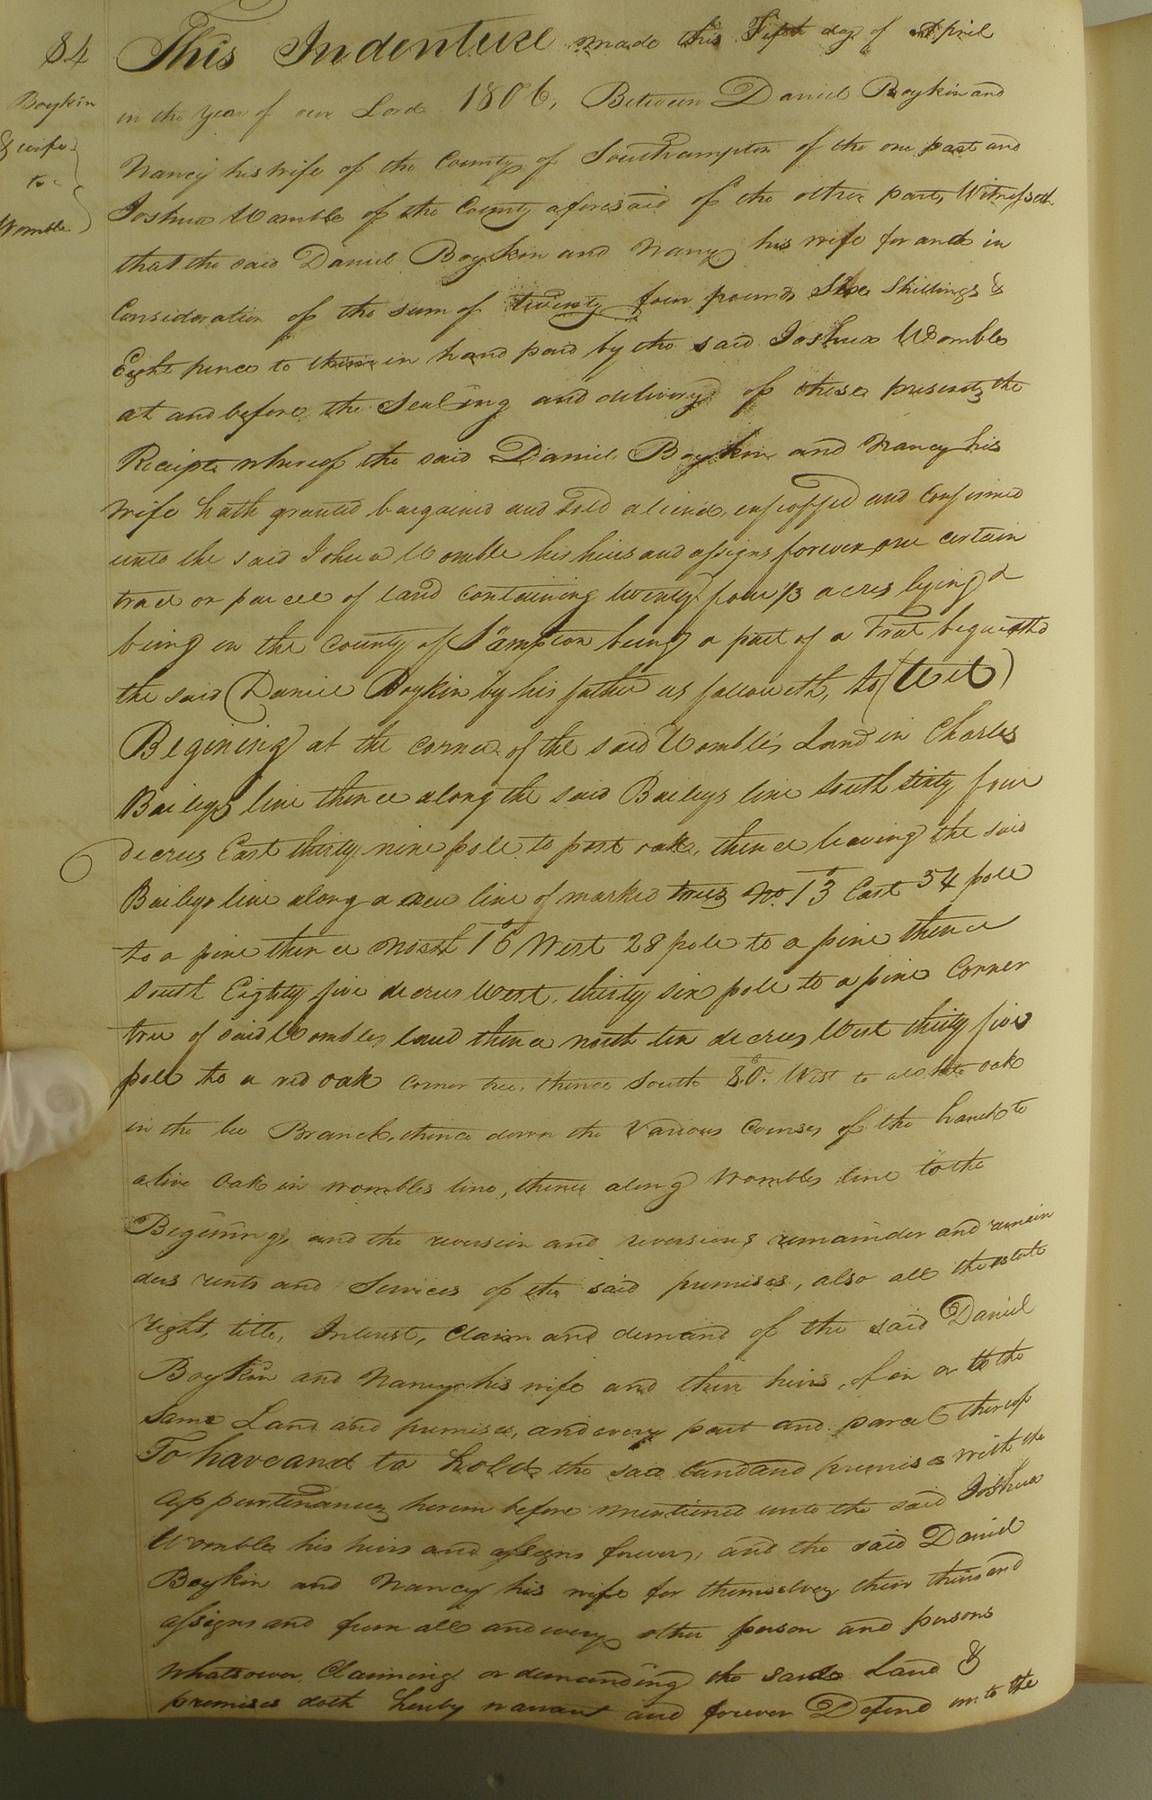 84
Boykin
& wife
to
Womble
This Indenture made this First day of April
in the year of our Lord 1806, Between Daniel Boykin and
Nancy his wife of the County of Southampton of the one part and
Joshua Womble of the County aforesaid of the other part, Witnesseth
that the said Daniel Boykin and Nancy his wife for and in
Consideration of the sum of twenty four pounds Six Shillings &
Eight pence to them in hand paid by the said Joshua Womble
at and before the Sealing and delivery of these presents the
Receipt whereof the said Daniel Boykin and Nancy his
wife hath granted bargained and Sold aliend, enfeoffed and Confirmed
unto the said Joshua Womble his heirs and assigns forever one certain
tract or parcel of land containing twenty four 1/3 acres lying &
being in the County of S'ampton being a part of a Trat bequeathd
the said Daniel Boykin by his father as followeth, to (Wit)
Begining at the corner of the said Womble's Land in Charles
Baileys line thence along the said Baileys line South sixty four
decrees East thirty nine pole to post oak, thence leaving the said
Baileys line along a new line of marked trees No. 13° East 54 pole
to a pine thence North 16° West 28 pole to a pine thence
South Eighty five decrees West, thirty six pole to a pine Corner
tree of said Wombles land thence north ten decrees West thirty five
pole to a red oak corner tree, thence South 80° West to a white oak
in the Branch, thence down the Various Courses of the branch to
a live Oak in wombles line, thence along Wombles line to the
Begining, and the reversion and reversions remainder and remain
ders rents and Services of the said premises, also all the estate
right, title, Interest, Claim and demand of the said Daniel
Boykin and Nancy his wife and their heirs, of in or to the
same Land and premises, and every part and parcel thereof
To have and to hold the said land and premises with the
appurtenances herein before mentioned unto the said Joshua
Womble his heirs and assigns forever, and the said Daniel
Boykin and Nancy his wife for themselves their heirs and
assigns and from all and every other person and persons
whatsoever Claiming or demanding the same Land &
premises doth hereby warrant and forever Defend unto the